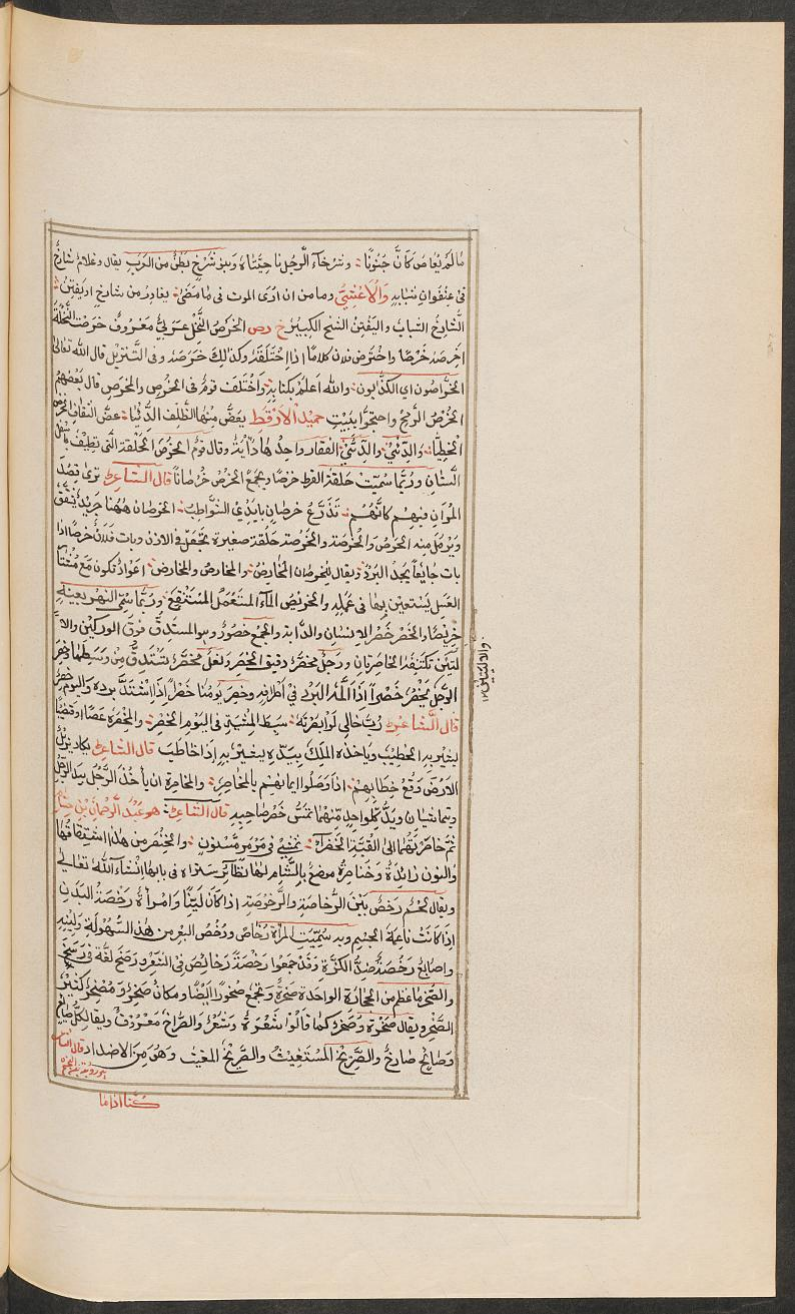 مالم يعاص كان جنونا ؞ وشرخا الرجل نا حيتاه وبنو شرخ بطن من العرب يقال وغلام شارخ
فى عنفوان شبابه والاعشى وما من ان ارى الموت فى ما مضى ؞ يغادر من شارخ او يفن ؞
الشارخ الشباب واليفن الشيخ الكبير خ رص الخرص النخل عربى معروف خرصت النخلة
اخرصه خرصا واخترص فلان كلاما اذا اختلقه وكذلك خرصه وفى التنزيل قال الله تعالى
الخراصون اى الكذابون ؞ والله اعلم بكتابه ؞ واختلف قوم فى الخرص والخرص قال بعضهم
الخرص الرمح واحتجوا ببيت حميد الارقط يعض منها الظلف الدئيا ؞ عض الثقاف الخرص
الخطيا ؞ والدئى ؞ والدئى ؞ الفقار واحد لها دأية وقال قوم الخرص الحلقة التى تطيف باسفل
السنان وربما سميت حلقة القرط خرصا ويجمع الخرص خرصانا قال الشاعر ترى قصد
المران فيهم كانهم ؞ تذرع خرصان بايدى الشواطب ؞ الخرصان ههنا جريد يشقق
ويرمل منه الحصر والخرصة والخرصة حلقة صغيرة تجعل فى الاذن وبات فلان خرصا اذا
بات جائعا يجد البرد ويقال للخرصان المخاريص ؞ والمخارص والمخارص ؞ اعواد تكون مع مشتار
العسل يستعين بها فى عمله والخريص الماء المستنقع ؞ وربما سمى النهر بعينه
خريصا والخصر خصر الانسان والدابة والجمع خصور وهو المستدق فوق الوركين والا
لتين تكتنفه الخاصرتان ورجل مخصر دقيق الخصر ونعل مخصر تستدق من وسطها وخصر
الرجل يخصر خصرا اذا المه البرد فى اطرافه وخصر يومنا خصرا اذا اشتد برده واليوم خصر
قال الشاعر رب خالى لو ابصرته ؞ سبط المشية فى اليوم الخصر ؞ والمخصرة عصا او قضيبا
يشير به الخطيب وياخذه الملك بيده يشير به اذا خاطب قال الشاعر يكاد يزيل
الارض وقع خطابهم ؞ اذا وصلوا ايمانهم بالمخاصر ؞ والمخاصرة ان ياخذ الرجل بيد الرجل
ويتماشيان ويد كل واحد منهما تمس خصر صاحبه قال الشاعر ؞ هو عبد الرحمان بن حسان
ثم خاصرتها الى القبة الخضراء ؞ تمشى فى مرمر مسنون ؞ والخنصر من هذا اشتقاقها
والنون زائدة وخناصرة موضع بالشام لها نظائر ستراه فى بابها انشاء الله تعالى
ويقال لحم رخص بين الرخاصة والرخوصة اذا كان لينا وامراة رخصة البدن
اذا كانت ناعمة الجسم وبه سميت المراة رخاص ورخص السعر من هذا السهولة ولينه
واصابع رخصة ضد الكزة وقد جمعوا رخصة رخائص فى الشعر ورصخ لغة فى رسخ
والصخر ما عظم من الحجارة الواحدة صخرة ويجمع صخورا ايضا ومكان صخر ومصخر كثير
الصخر ويقال صخرة وصخر كما قالوا شعرة وشعر والصراخ معروف ويقال لكل صايح
وصايح صارخ والصريخ المستغيث والصريخ المغيث وهو من الاضداد قال الشاعر
كنا اذا ما
والاليتين ١٢